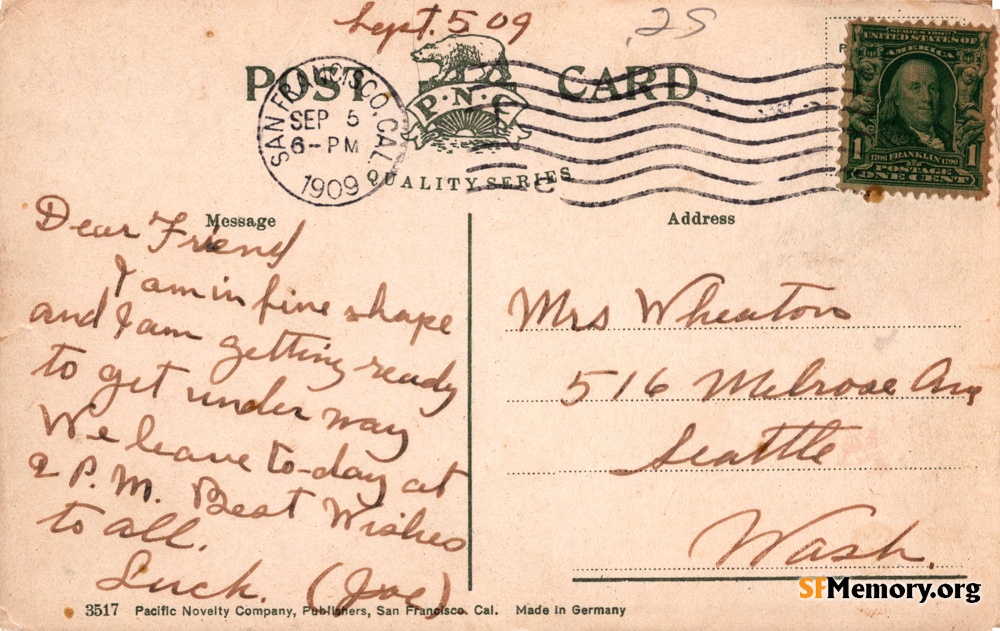 Sept. 5 09
25
POST CARD
P. N. C.
SAN FRANCISCO, CAL.
SEP 5
6-PM
1909
QUALITY SERIES
SERIES 1902
UNITED STATES OF
AMERICA
1 1
1706 FRANKLIN 1790
POSTAGE
ONE CENT
Message
Dear Friend
I am in fine shape
and I am getting ready
to get under way
We leave to-day at
2 P. M. Best Wishes
to all.
Luck. (Joe)
Address
Mrs Wheaton
516 Melrose Ave
Seattle
Wash.
3517 Pacific Novelty Company, Publishers, San Francisco, Cal. Made in Germany
SFMemory.org